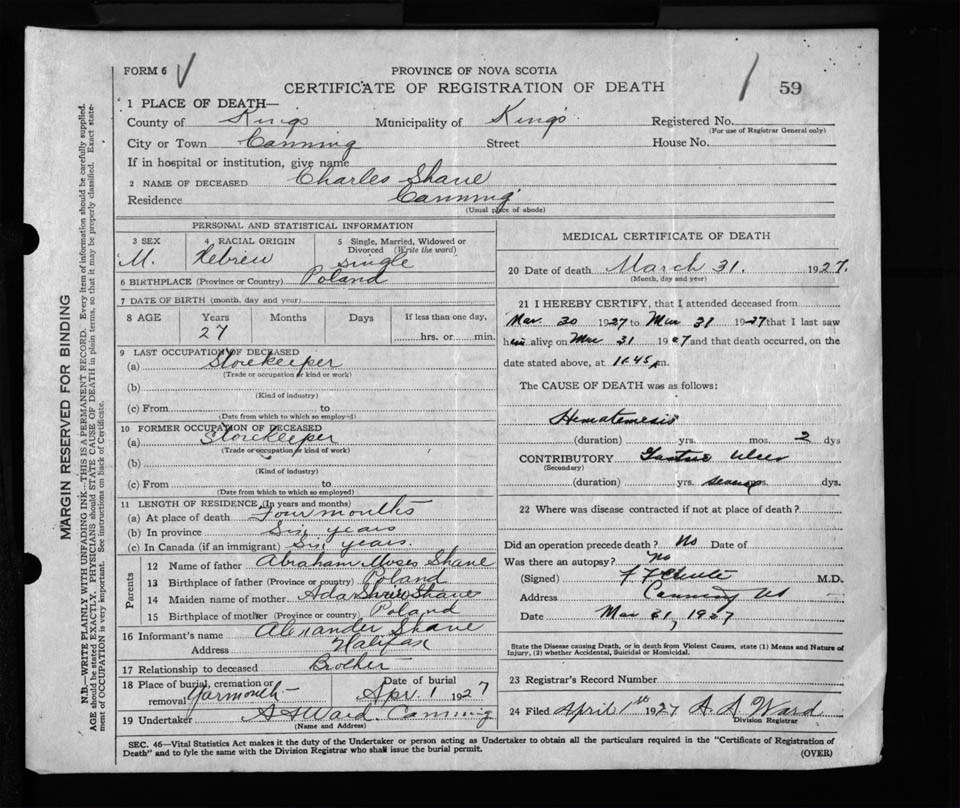 FORM 6
PROVINCE OF NOVA SCOTIA
CERTIFICATE OF REGISTRATION OF DEATH
59
1 PLACE OF DEATH—
County of King's Municipality of King's Registered No.
(For use of Registrar General only)
City or Town Canning Street House No.
If in hospital or institution, give name
2 NAME OF DECEASED Charles Shane
Residence Canning
(Usual place of abode)
PERSONAL AND STATISTICAL INFORMATION
3 SEX 4 RACIAL ORIGIN 5 Single, Married, Widowed or Divorced (Write the word)
M. Hebrew single
6 BIRTHPLACE (Province or Country) Poland
7 DATE OF BIRTH (month, day and year)
8 AGE Years Months Days If less than one day,
27 hrs. or min.
9 LAST OCCUPATION OF DECEASED
(a) Storekeeper
(Trade or occupation or kind or work)
(b)
(Kind of industry)
(c) From to
(Date from which to which so employed)
10 FORMER OCCUPATION OF DECEASED
(a) Storekeeper
(Trade or occupation of kind of work)
(b)
(Kind of industry)
(c) From to
(Date from which to which so employed)
11 LENGTH OF RESIDENCE (In years and months)
(a) At place of death Four months
(b) In province Six years
(c) In Canada (if an immigrant) Six years.
Parents
12 Name of father Abraham Moses Shane
13 Birthplace of father (Province or country) Poland
14 Maiden name of mother Ada Shane
15 Birthplace of mother (Province or country) Poland
16 Informant's name Alexander Shane
Address Halifax
17 Relationship to deceased Brother
18 Place of burial, cremation or removal Yarmouth Date of burial Apr. 1 1927
19 Undertaker A A Ward Canning
(Name and Address)
MEDICAL CERTIFICATE OF DEATH
20 Date of death March 31. 1927.
(Month, day and year)
21 I HEREBY CERTIFY, that I attended deceased from
Mar. 30 1927 to Mar 31 1927 that I last saw
him alive on Mar 31 1927 and that death occurred, on the
date stated above, at 11.45 m.
The CAUSE OF DEATH was as follows:
Hematemesis
(duration) yrs. mos. 2 dys
CONTRIBUTORY Gastric Ulcer
(Secondary)
(duration) yrs. several mos. dys.
22 Where was disease contracted if not at place of death?
Did an operation precede death? No Date of
Was there an autopsy? No
(Signed) M.D.
Address Canning NS
Date Mar 31, 1927
State the Disease causing Death, or in death from Violent Causes, state (1) Means and Nature of
Injury, (2) whether Accidental, Suicidal or Homicidal.
23 Registrar's Record Number
24 Filed April 1st 1927 A. A Ward
Division Registrar
SEC. 46—Vital Statistics Act makes it the duty of the Undertaker or person acting as Undertaker to obtain all the particulars required in the "Certificate of Registration of
Death" and to fyle the same with the Division Registrar who shall issue the burial permit.
(OVER)
MARGIN RESERVED FOR BINDING
N.B.—WRITE PLAINLY, WITH UNFADING INK—THIS IS A PERMANENT RECORD. Every item of information should be carefully supplied.
AGE should be stated EXACTLY. PHYSICIANS should STATE CAUSE OF DEATH in plain terms, so that it may be properly classified. Exact state-
ment of OCCUPATION is very important. See instructions on back of Certificate.